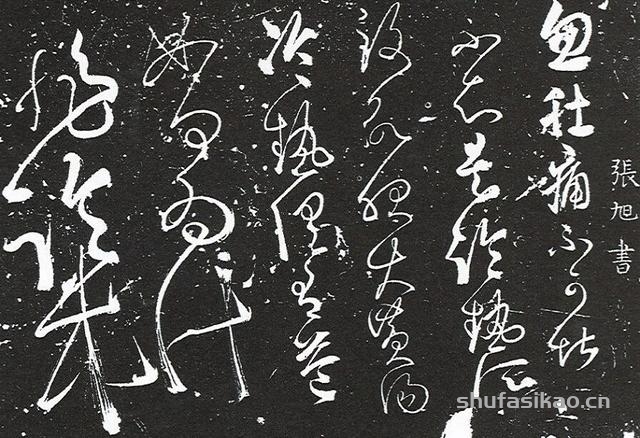 張旭書
忽肚痛不可堪
不知是冷熱所
致欲服大黃湯
冷熱俱有益
如何為計
非
shufasikao.cn